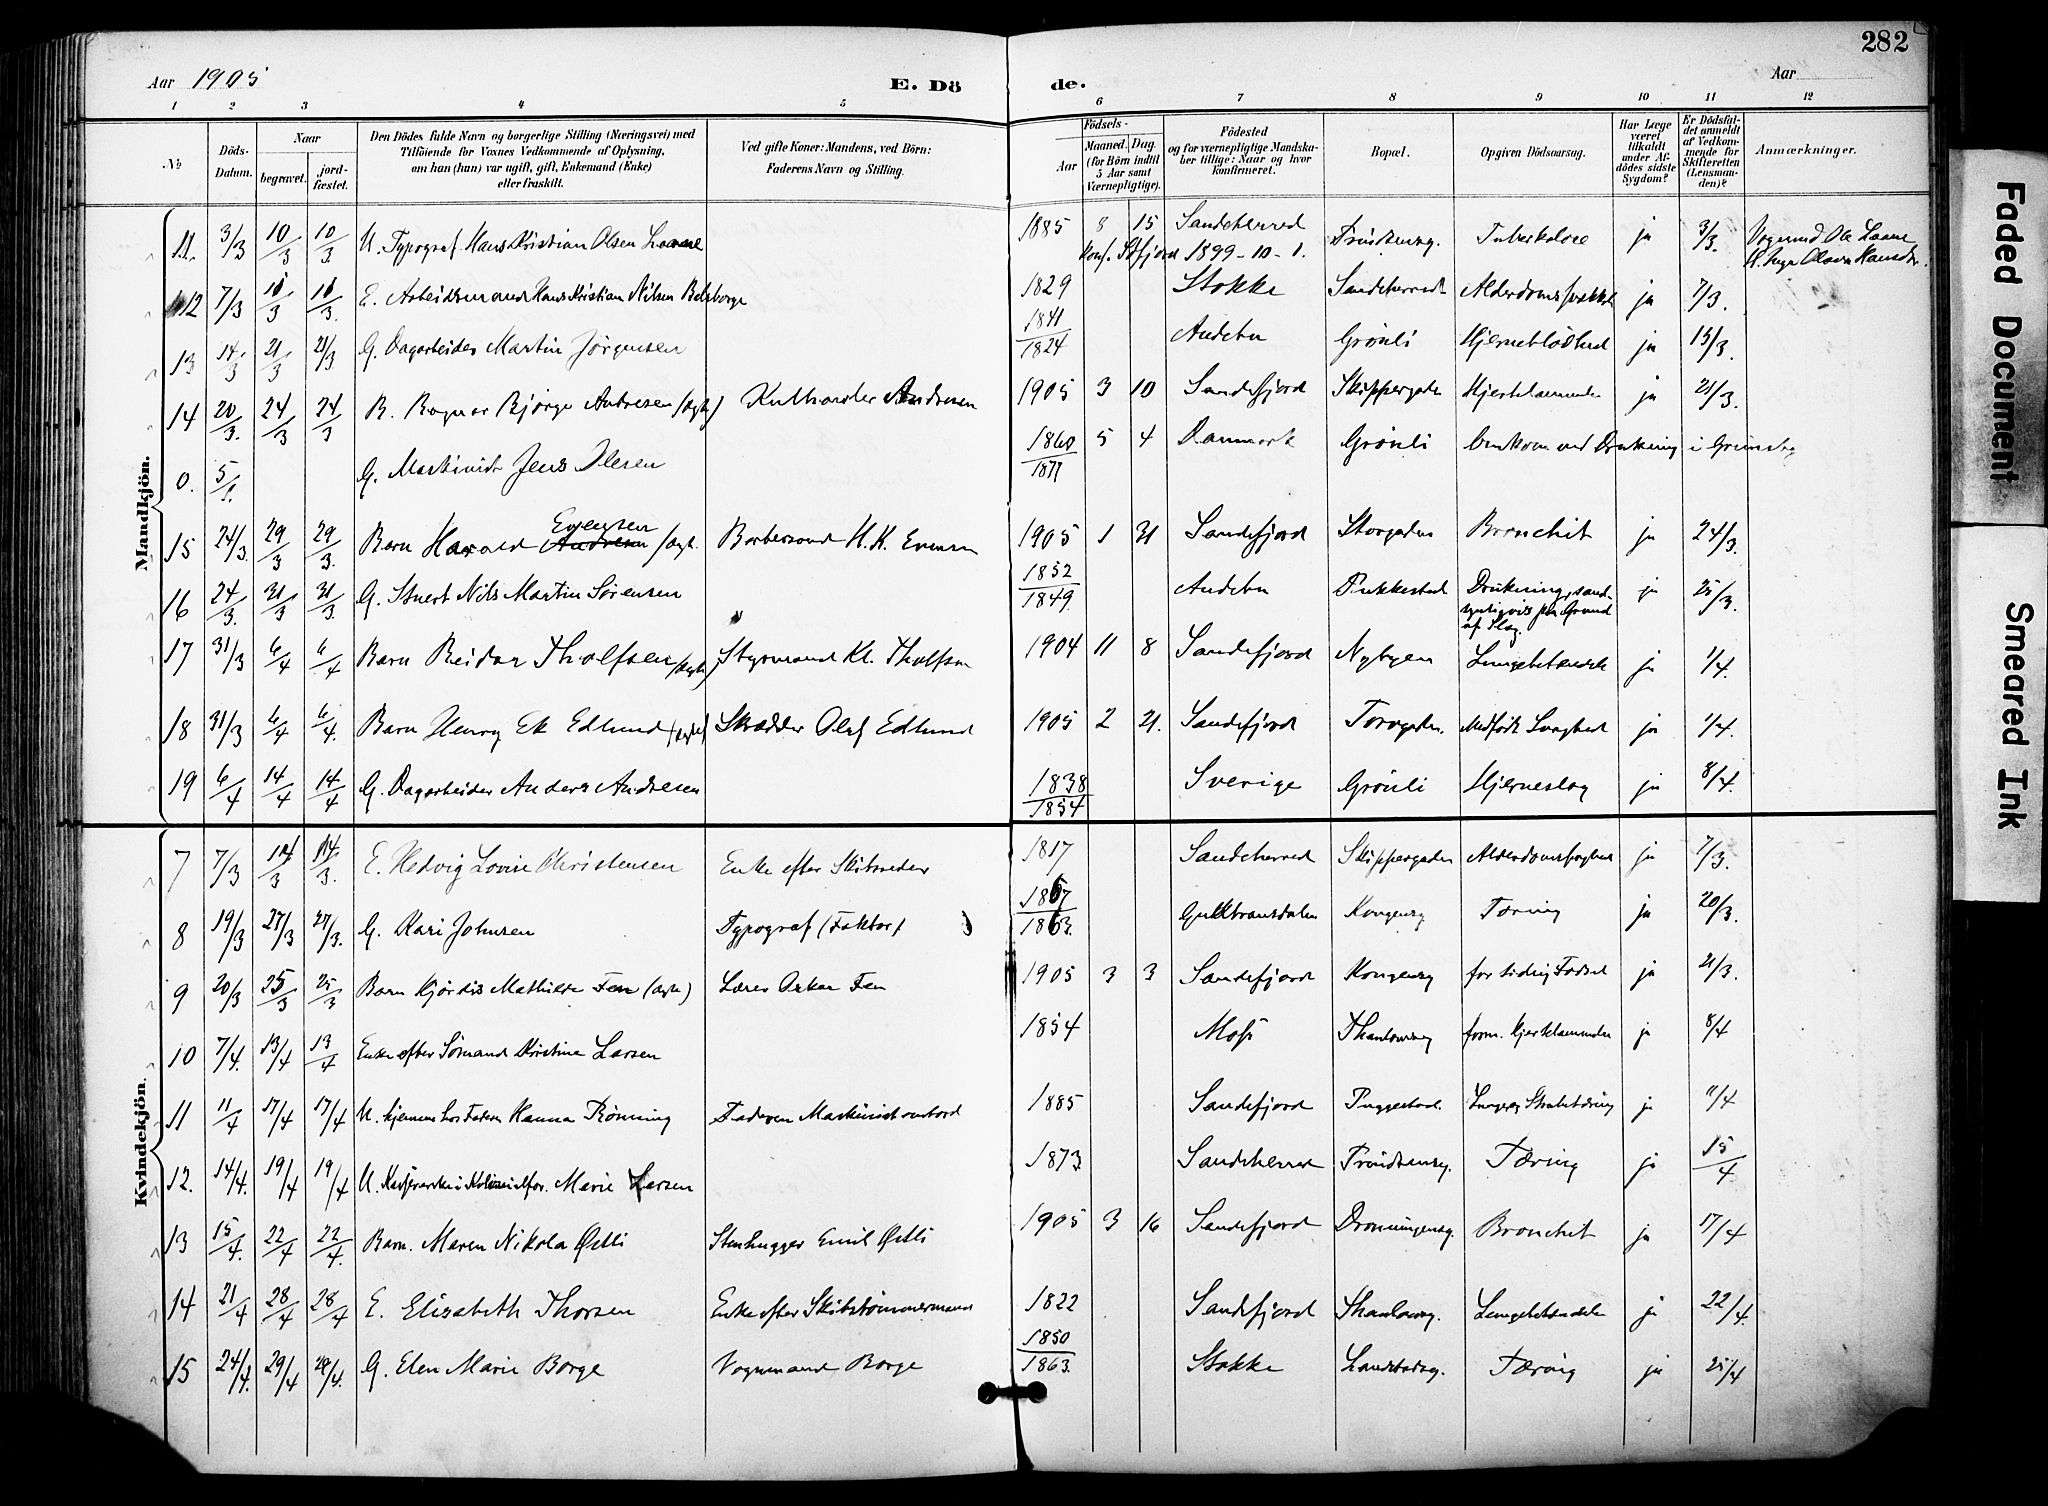 282
Aar 1905
E. Dö
de.
Aar
1 2 3 4 5 6 7 8 9 10 11 12
No
Döds-Datum.
Naar
begravet.
jord-fæstet.
Den Dödes fulde Navn og borgerlige Stilling (Næringsvei) med
Tilföiende for Voxnes Vedkommende af Oplysning,
om han (hun) var ugift, gift, Enkemand (Enke)
eller fraskilt.
Ved gifte Koner: Mandens, ved Börn:
Faderens Navn og Stilling.
Födsels-
Aar
Maaned. Dag.
(for Börn indtil
5 Aar samt
Værnepligtige).
Födested
og for værnepligtige Mandska-
ber tillige: Naar og hvor
konfirmeret.
Bopæl.
Opgiven Dödsaarsag.
Har Læge
været
tilkaldt
under Af-
dödes sidste
Sygdom?
Er Dödsfal-
det anmeldt
af Vedkom-
mende for
Skifteretten
(Lensman-
den)?
Anmærkninger.
Mandkjön.
11. 3/3 10/3 10/3 U. Typograf Hans Kristian Olsen 1885 8 15 Sandeherred ja 3/3.
Konf. S.fjord 1899-10-1.
12 7/3 E. Arbeidsmand Hans Kristian Nilsen 1829 Stokke Sandeherred ja 7/3.
13 14/3 21/3 21/3 G. Dagarbeider Martin Jørgensen 1841/1824 Andebu Grönli ja 15/3.
14 20/3. 24/3 24/3 B. Ragnar Bjørge Andresen (ægte) Andresen 1905 3 10 Sandefjord Skippergaden ja 21/3.
0. 5/1. G. Maskinist Jens 1860/1877 5 4 Danmark Grönli Omkom ved Drukning i Grimstad
15 24/3. 29/3 29/3. Barn Harald Andresen Evensen (ægte Barbersvend H. K. Evensen 1905 1 21 Sandefjord Storgaden Bronchit ja 24/3.
16 24/3. 31/3 31/3 G. Stuert Nils Martin Sørensen 1852/1849 Andebu Pukkestad Drukning, sand-
synligvis paa Grund
af Slag. ja 25/3.
17 31/3 6/4 6/4 Barn Reidar Tholfsen (ægte) Styrmand Kl. Tholfsen 1904 11 8 Sandefjord Nybyen Lungebetændelse ja 1/4.
18 31/3 6/4 6/4. Barn Henry Ek Edlund (ægte) Skrædder Olaf Edlund 1905 2 21. Sandefjord Torvgaden. Medfödt Svaghed ja 1/4.
19 6/4 14/4 14/4 G. Dagarbeider Anders Andresen 1838/1854 Sverige Grönli Hjerneslag ja 8/4.
Kvindekjön.
7 7/3 14/3 14/3. E. Hedvig Lovise Christensen Enke efter Skibsreder 1817 Sandeherred Skippergaden Alderdomssvaghed ja 7/3.
8 19/3 27/3 27/3. G. Kari Johnsen Typograf (Faktor) 1867/1863. Gudbransdalen Kongensg Tæring ja 20/3.
9 20/3 25/3 25/3 Barn Hjørdis Mathilde Fen (ægte) Lærer Oskar Fen 1905 3 3 Sandefjord Kongensg for tidlig Fødsel ja 21/3.
10 7/4. 13/4 13/4 Enke efter Sømand Kristine Larsen 1854 Moss Thaulowsg form. Hjertelammelse ja 8/4
11 11/4 17/4 17/4 U. hjemme hos Faderen Hanna Rönning Faderen Maskinist ombord 1885 Sandefjord Puggestad. ja 11/4
12. 14/4. 19/4 19/4 U. Kasjererske i Kolonialfor. Marie Larsen 1873 Sandeherred Tæring ja 15/4
13 15/4. 22/4 22/4. Barn. Maren Nikola Østli Stenhugger Emil Østli 1905 3 16 Sandefjord Dronningensg. Bronchit ja 17/4
14 21/4 28/4 28/4 E. Elisabeth Thorsen Enke efter Skibstömmermand 1822 Sandefjord Thaulowsg. Lungebetændelse ja 22/4.
15 24/4. 29/4 29/4. G. Elen Marie Borge Vognmand Borge 1850/1863. Stokke Landstadsg. Tæring ja 25/4
Faded Document
Smeared Ink